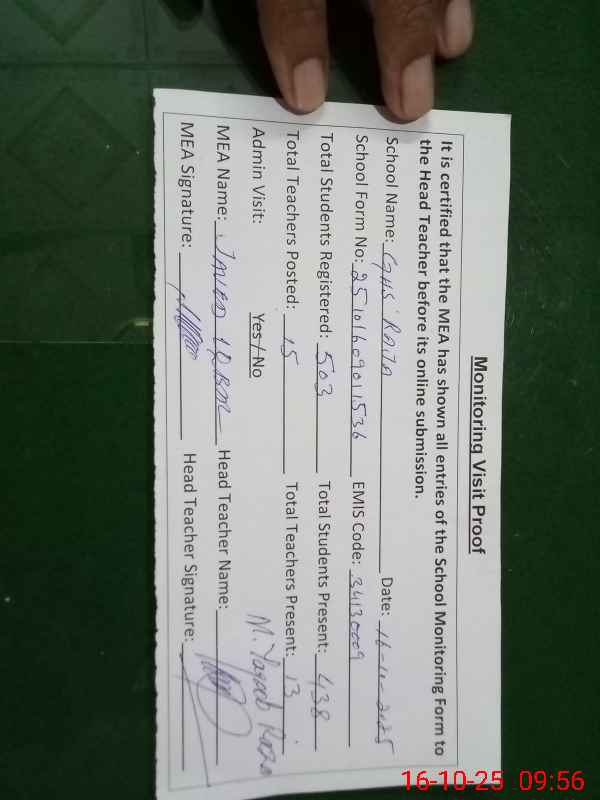 Monitoring Visit Proof
It is certified that the MEA has shown all entries of the School Monitoring Form to
the Head Teacher before its online submission.
School Name: GHS RAJA Date: 16-10-2025
School Form No: 25101609011536 EMIS Code: 34130009
Total Students Registered: 503 Total Students Present: 438
Total Teachers Posted: 15 Total Teachers Present: 13
Admin Visit: Yes / No
M. Yaqoob Raza
MEA Name: JAVED IQBAL Head Teacher Name:
MEA Signature: Head Teacher Signature:
16-10-25 09:56